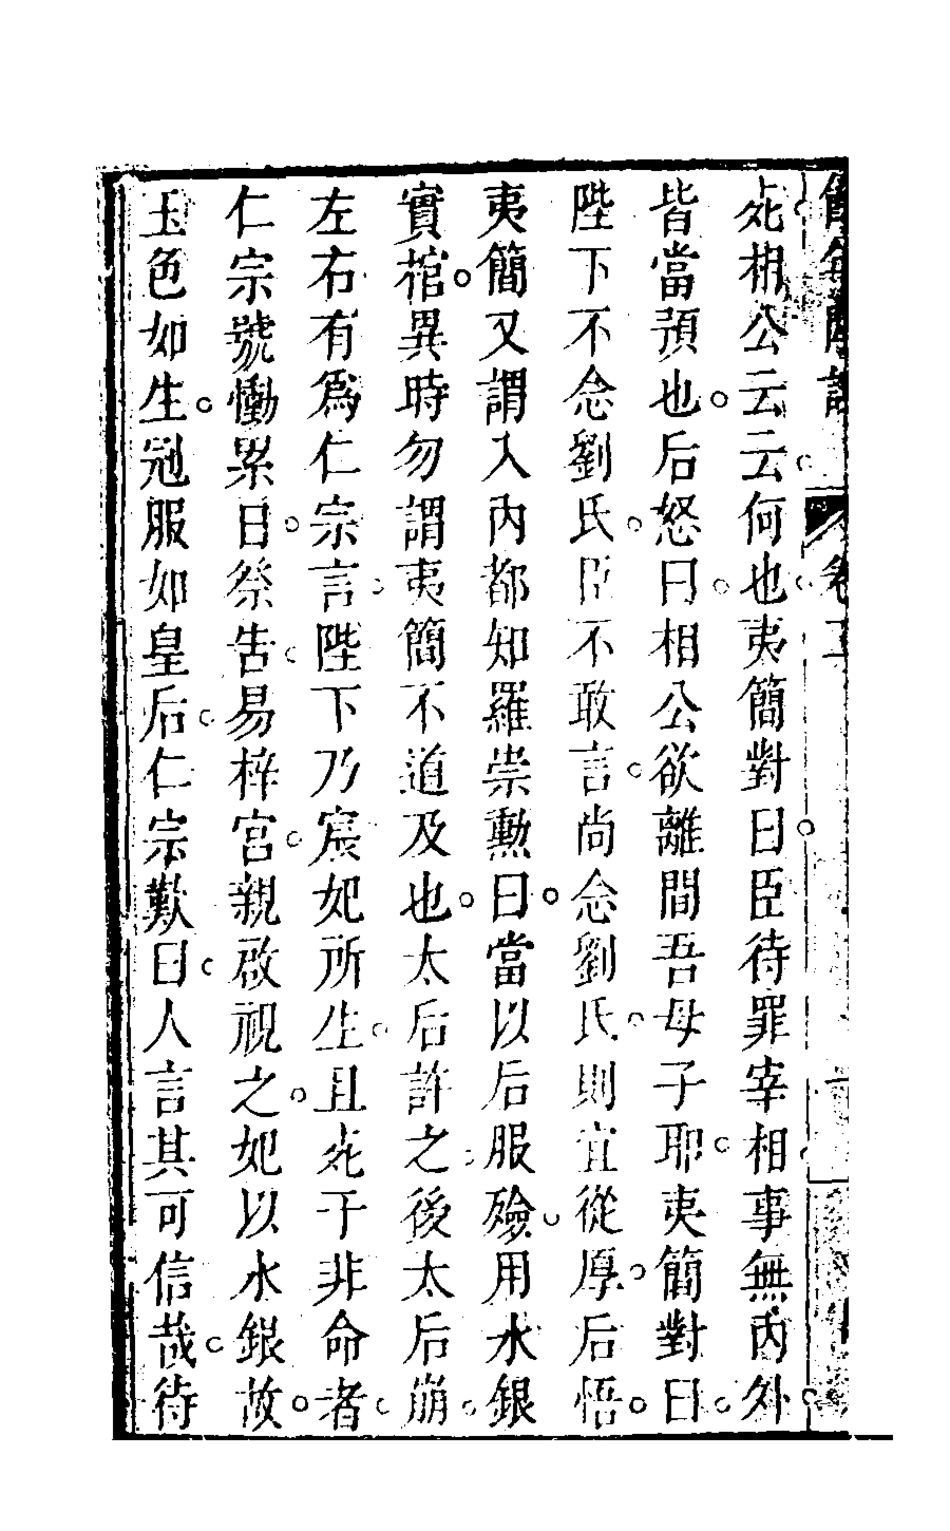 死相公云云何也夷簡對曰臣待罪宰相事無內外
皆當預也后怒曰相公欲離間吾母子耶夷簡對曰
陛下不念劉氏臣不敢言尚念劉氏則宜從厚后悟
夷簡又謂入內都知羅崇勳曰當以后服殮用水銀
實棺異時勿謂夷簡不道及也太后許之後太后崩
左右有爲仁宗言陛下乃宸妃所生且死于非命者
仁宗號慟累日祭告易梓宮親啟視之妃以水銀故
玉色如生冠服如皇后仁宗歎曰人言其可信哉待